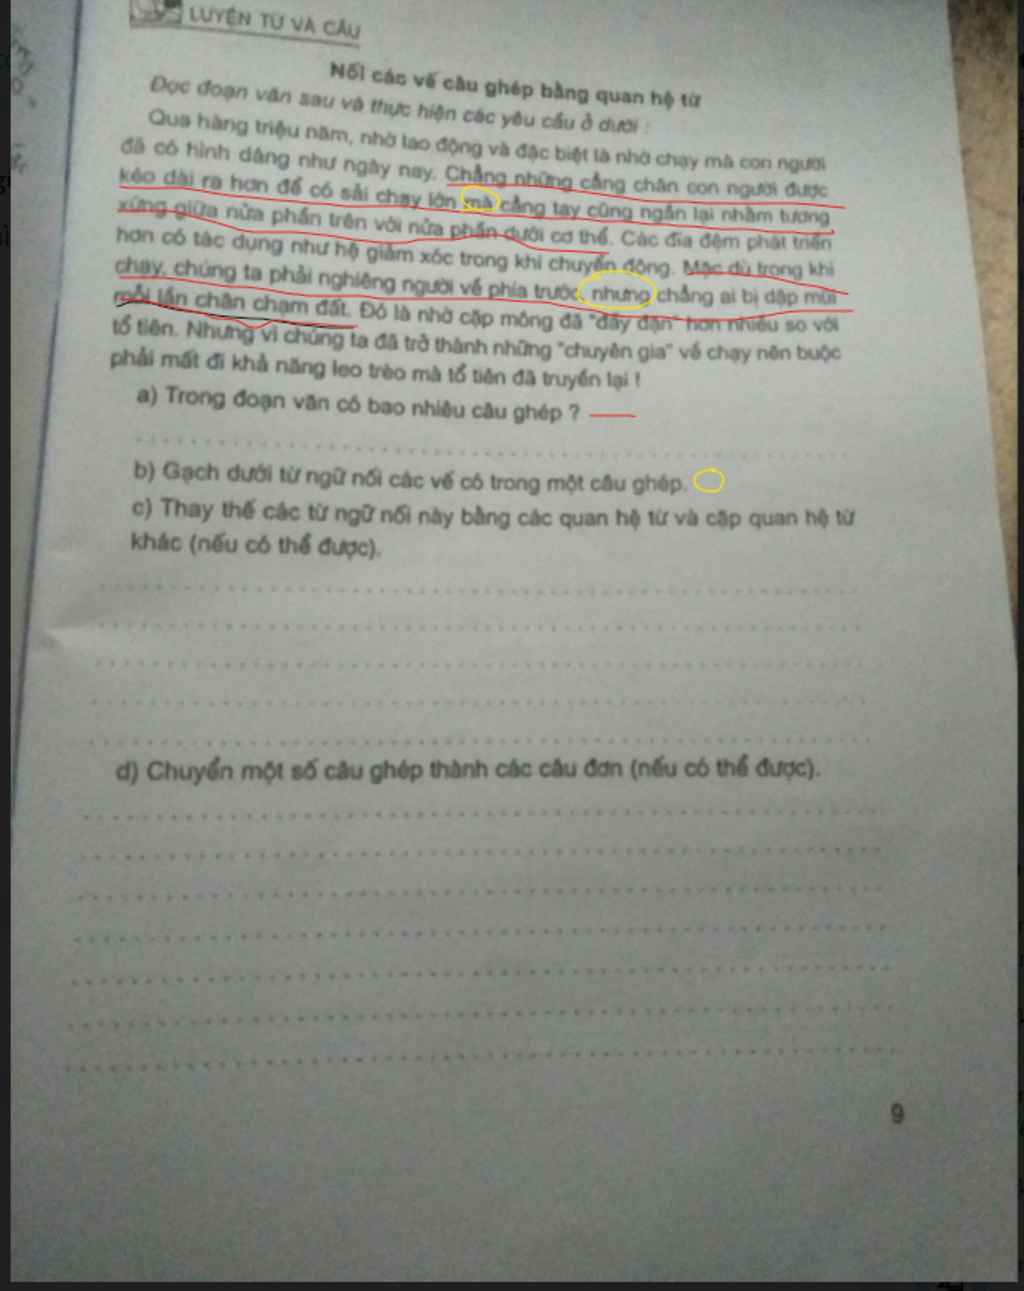 LUYỆN TỪ VÀ CÂU
Nối các vế câu ghép bằng quan hệ từ
Đọc đoạn văn sau và thực hiện các yêu cầu ở dưới :
Qua hàng triệu năm, nhờ lao động và đặc biệt là nhờ chạy mà con người
đã có hình dáng như ngày nay. Chẳng những cẳng chân con người được
kéo dài ra hơn để có sải chạy lớn mà cẳng tay cũng ngắn lại nhằm tương
xứng giữa nửa phần trên với nửa phần dưới cơ thể. Các đĩa đệm phát triển
hơn có tác dụng như hệ giảm xóc trong khi chuyển động. Mặc dù trong khi
chạy, chúng ta phải nghiêng người về phía trước nhưng chẳng ai bị dập mũi
mỗi lần chân chạm đất. Đó là nhờ cặp mông đã "đầy đặn" hơn nhiều so với
tổ tiên. Nhưng vì chúng ta đã trở thành những "chuyên gia" về chạy nên buộc
phải mất đi khả năng leo trèo mà tổ tiên đã truyền lại !
a) Trong đoạn văn có bao nhiêu câu ghép ?
b) Gạch dưới từ ngữ nối các vế có trong một câu ghép.
c) Thay thế các từ ngữ nối này bằng các quan hệ từ và cặp quan hệ từ
khác (nếu có thể được).
d) Chuyển một số câu ghép thành các câu đơn (nếu có thể được).
9